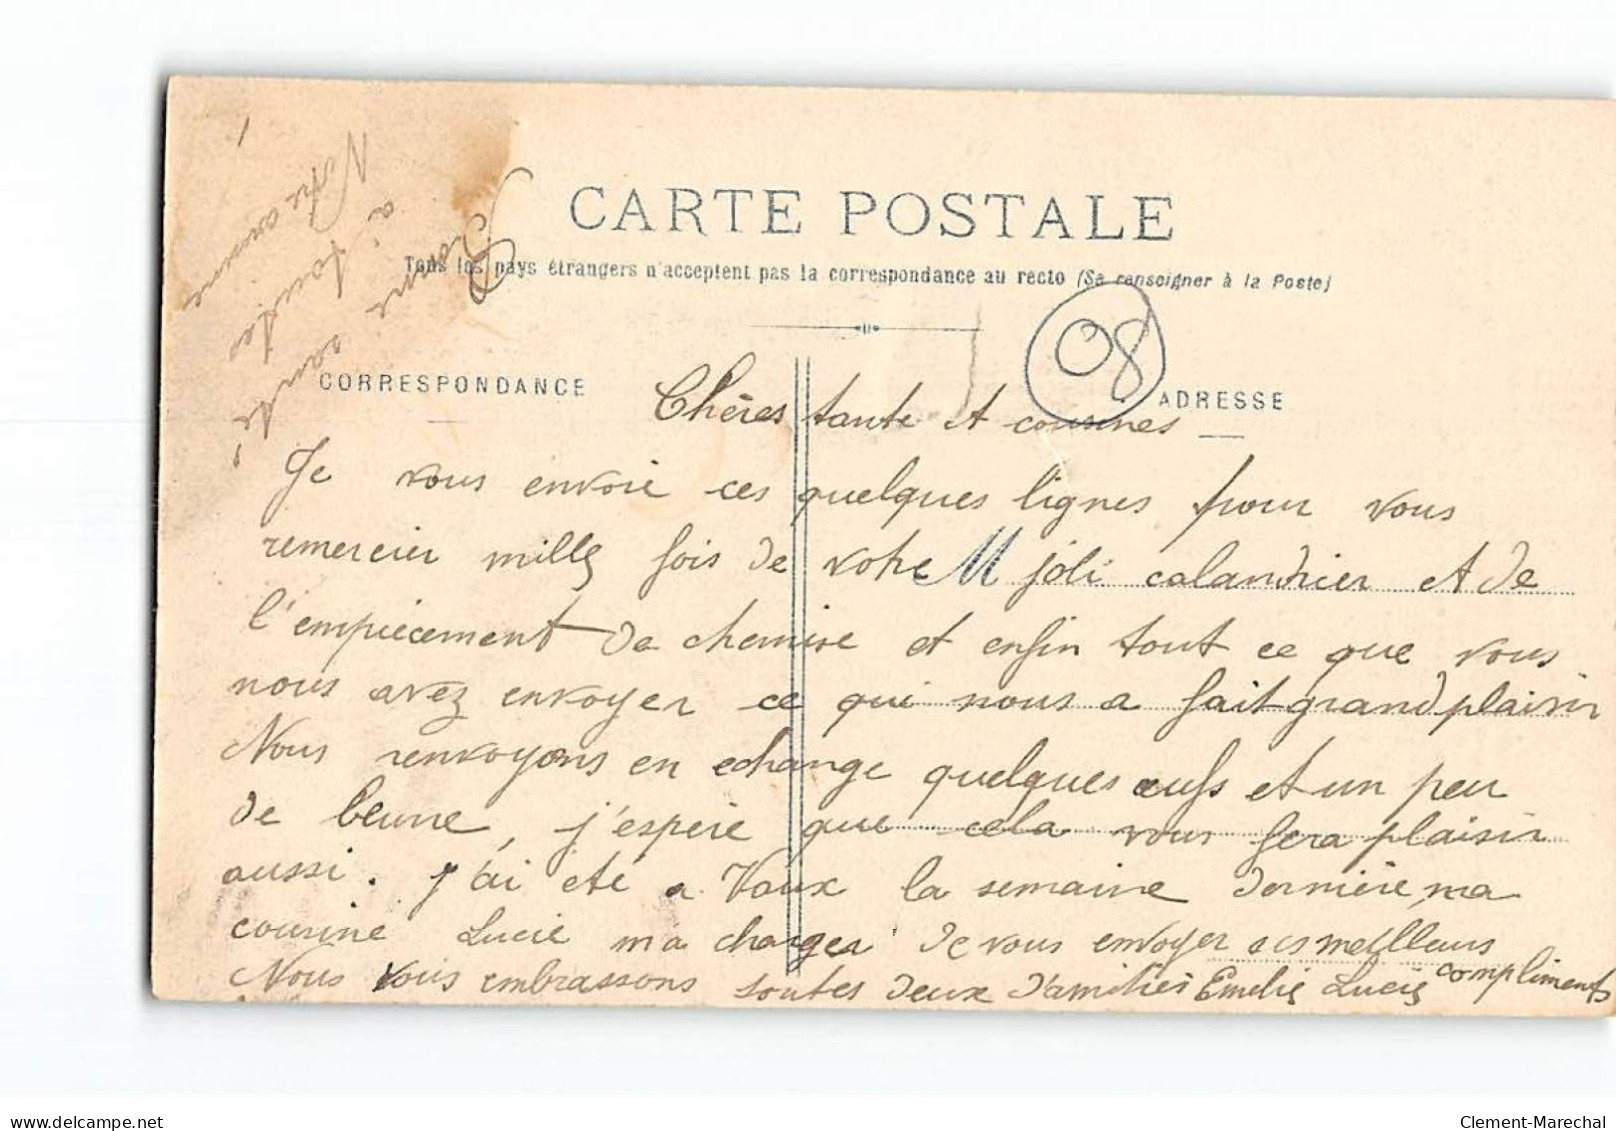 CARTE POSTALE
Tous les pays étrangers n'acceptent pas la correspondance au recto (Se renseigner à la Poste)
08
CORRESPONDANCE
ADRESSE
Bonne santé
à toutes
Chères tante et cousines
Je vous envoie ces quelques lignes pour vous
remercier mille fois de votre M joli calandrier et de
l'empiècement de chemise et enfin tout ce que vous
nous avez envoyer ce qui nous a fait grand plaisir
Nous renvoyons en echange quelques œufs et un peu
de beurre, j'espère que cela vous fera plaisir
aussi. J'ai été a Vaux la semaine dernière, ma
cousine Lucie m'a charger de vous envoyer ses meilleurs
compliments
Nous vous embrassons toutes deux d'amitiés Emelie Lucie
delcampe.net
Clement-Marechal